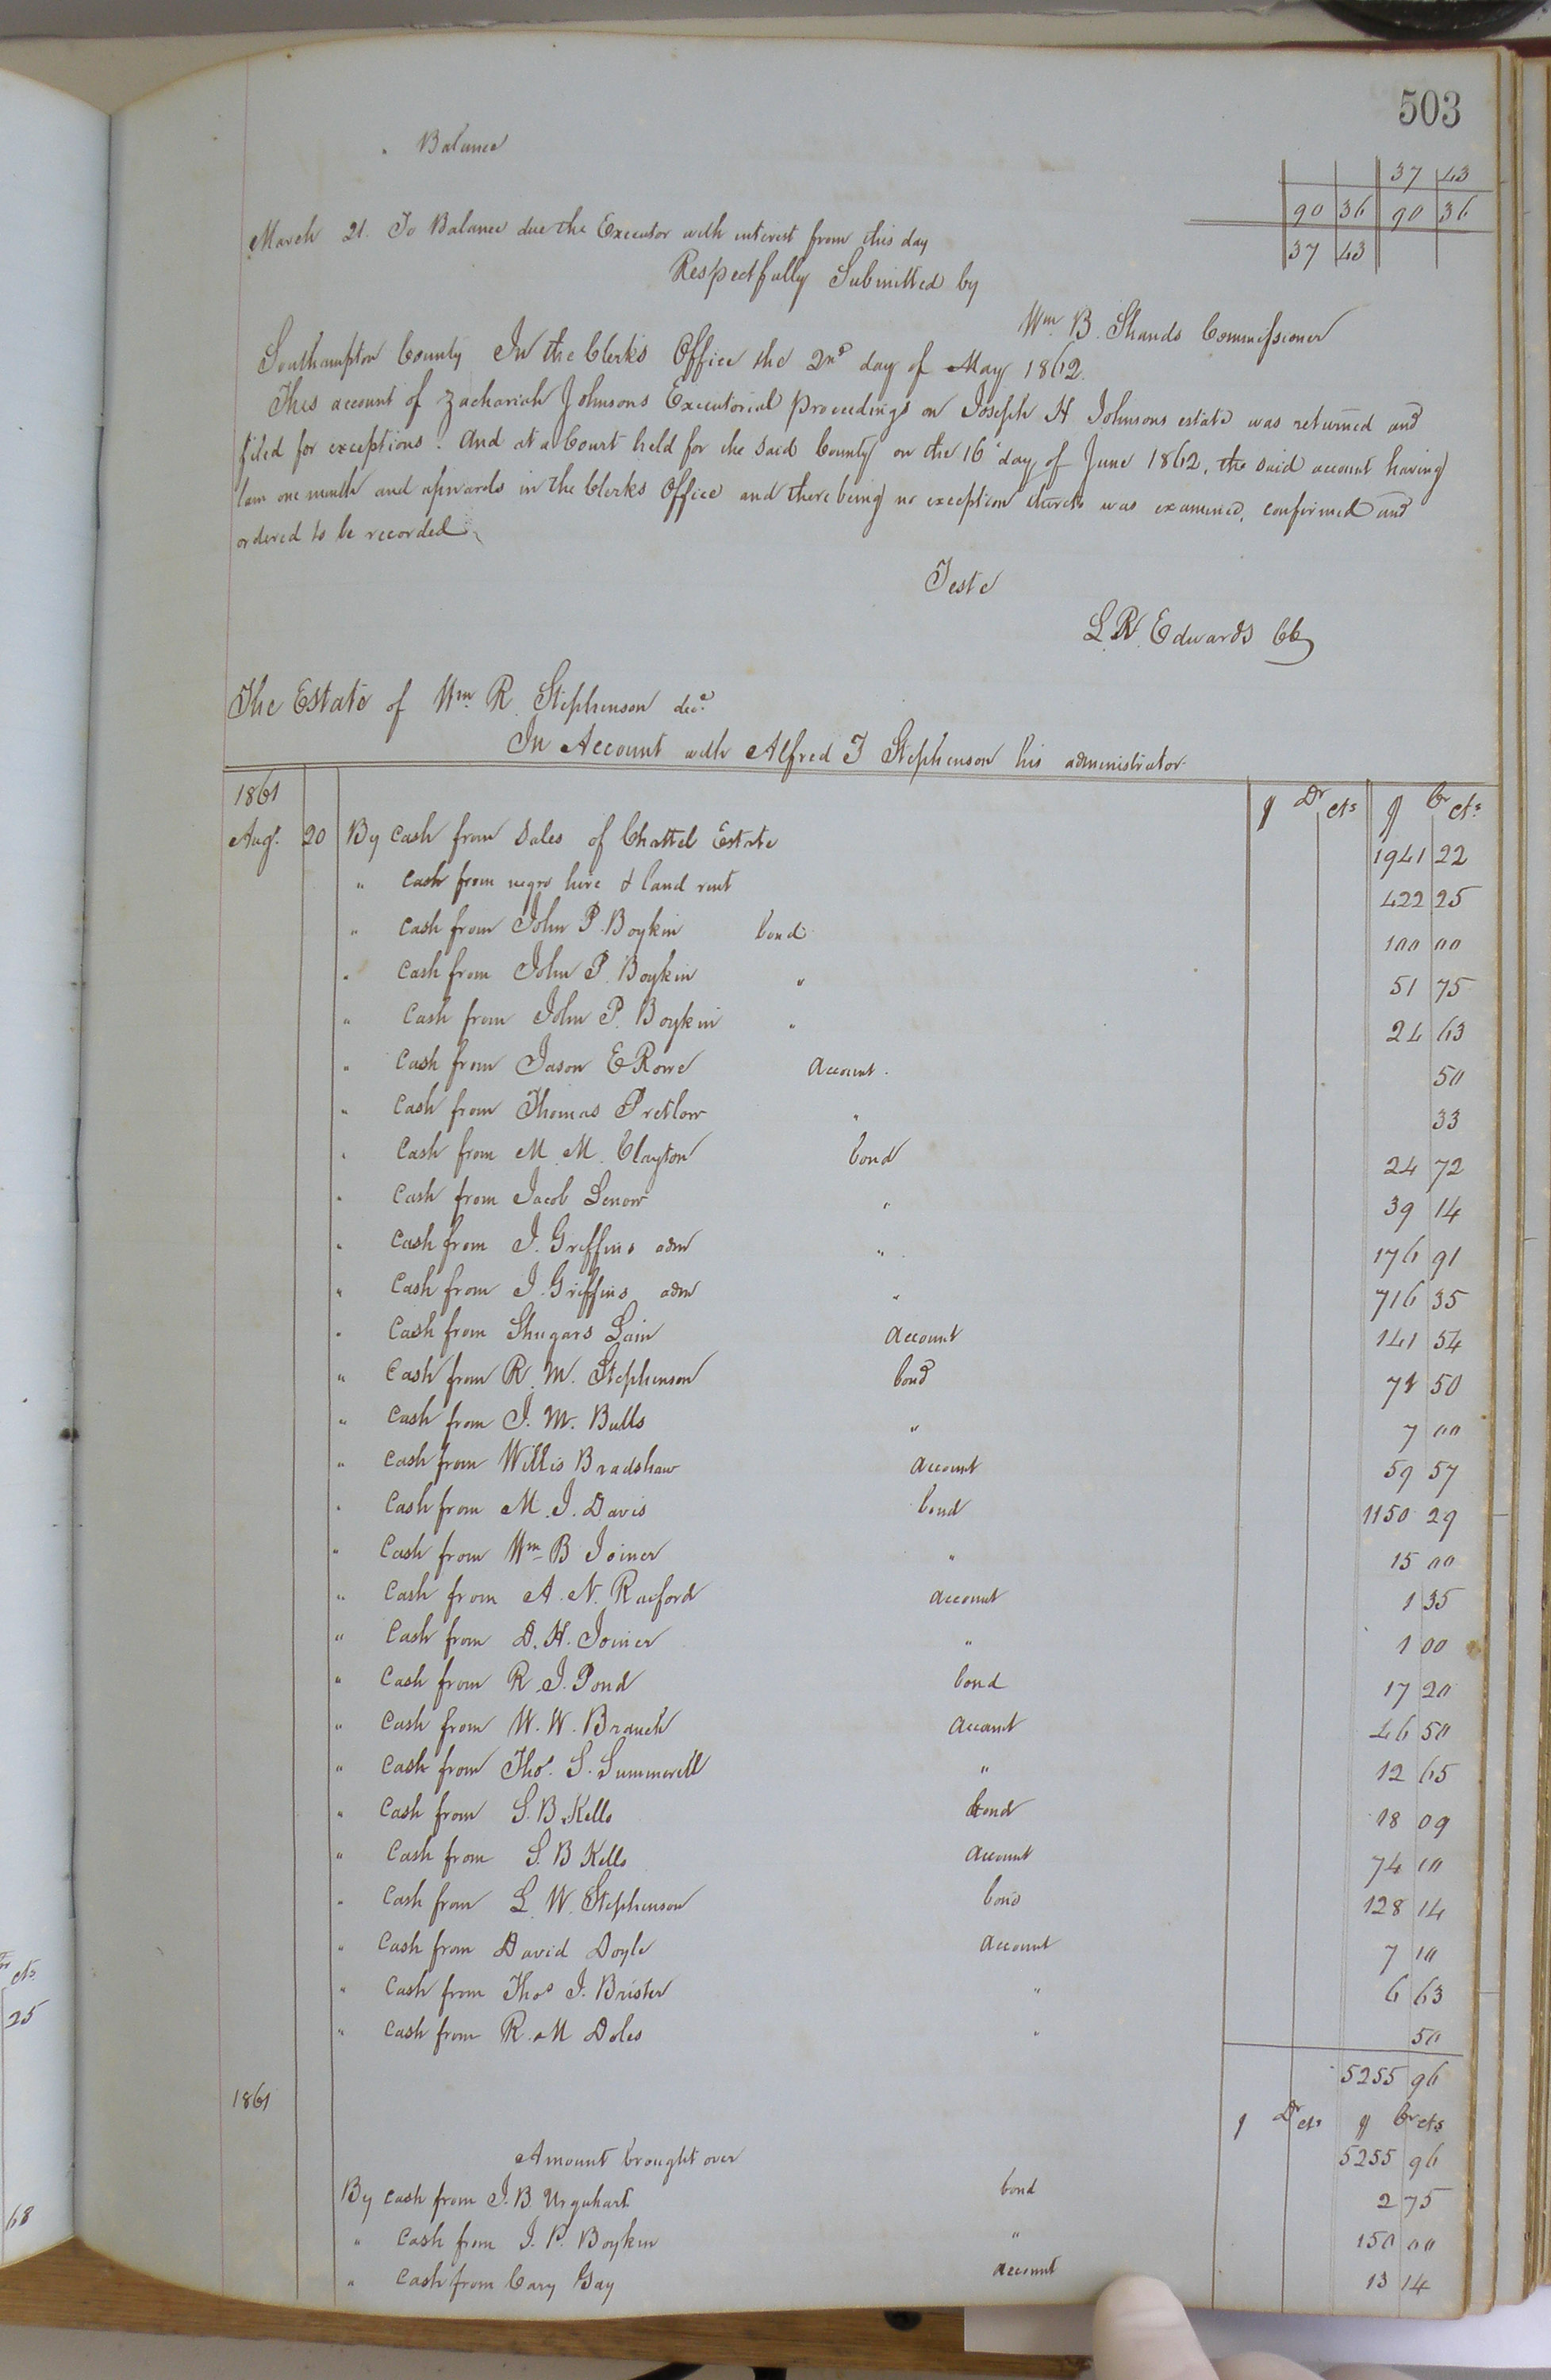 503
" Balance 37 43
90 36 90 36
March 21. To Balance due the Executor with interest from this day 37 43
Respectfully Submitted by
Wm B. Shands Commissioner
Southampton County In the Clerks Office the 2nd day of May 1862.
This account of Zachariah Johnsons Executorial proceedings on Joseph H Johnsons estate was returned and
filed for exceptions. And at a Court held for the said County on the 16 day of June 1862, the said account having
lain one month and upwards in the Clerks Office and there being no exception thereto was examined, confirmed and
ordered to be recorded
Teste
L. R. Edwards Clk
The Estate of Wm R. Stephenson decd
In Account with Alfred J Stephenson his administrator
1861 $ Dr cts $ Cr cts
Augt 20 By cash from sales of Chattel Estate 1941 22
" Cash from negro hire & land rent 422 25
" Cash from John P. Boykin bond 100 00
" Cash from John P. Boykin " 51 75
" Cash from John P. Boykin " 24 63
" Cash from Jason E Rowe Account 50
" Cash from Thomas Pretlow " 33
" Cash from M. M. Clayton bond 24 72
" Cash from Jacob Lenow " 39 14
" Cash from J. Griffins adm " 176 91
" Cash from J. Griffins adm " 716 35
" Cash from Shugars Lain Account 141 54
" Cash from R. M. Stephenson bond 50
" Cash from J. M. Bulls " 7 00
" Cash from Willis Bradshaw Account 59 57
" Cash from M. J. Davis bond 1150 29
" Cash from Wm B Joiner " 15 00
" Cash from A. N. Raiford account 1 35
" Cash from D. H. Joiner " 1 00
" Cash from R. J. Pond bond 17 20
" Cash from W. W. Branch Account 46 50
" Cash from Thos. S. Summerell " 12 65
" Cash from S. B. Kello bond 18 09
" Cash from S. B Kello account 74 10
" Cash from L. W. Stephenson bond 128 14
" Cash from David Doyle Account 7 10
" Cash from Thos J. Brister " 6 63
" Cash from R. M Doles " 50
5255 96
1861 $ Dr cts $ Cr cts
Amount brought over 5255 96
By cash from J. B. Urquhart bond 2 75
" Cash from J. P. Boykin " 150 00
" Cash from Cary Gay account 13 14
cts
25
68